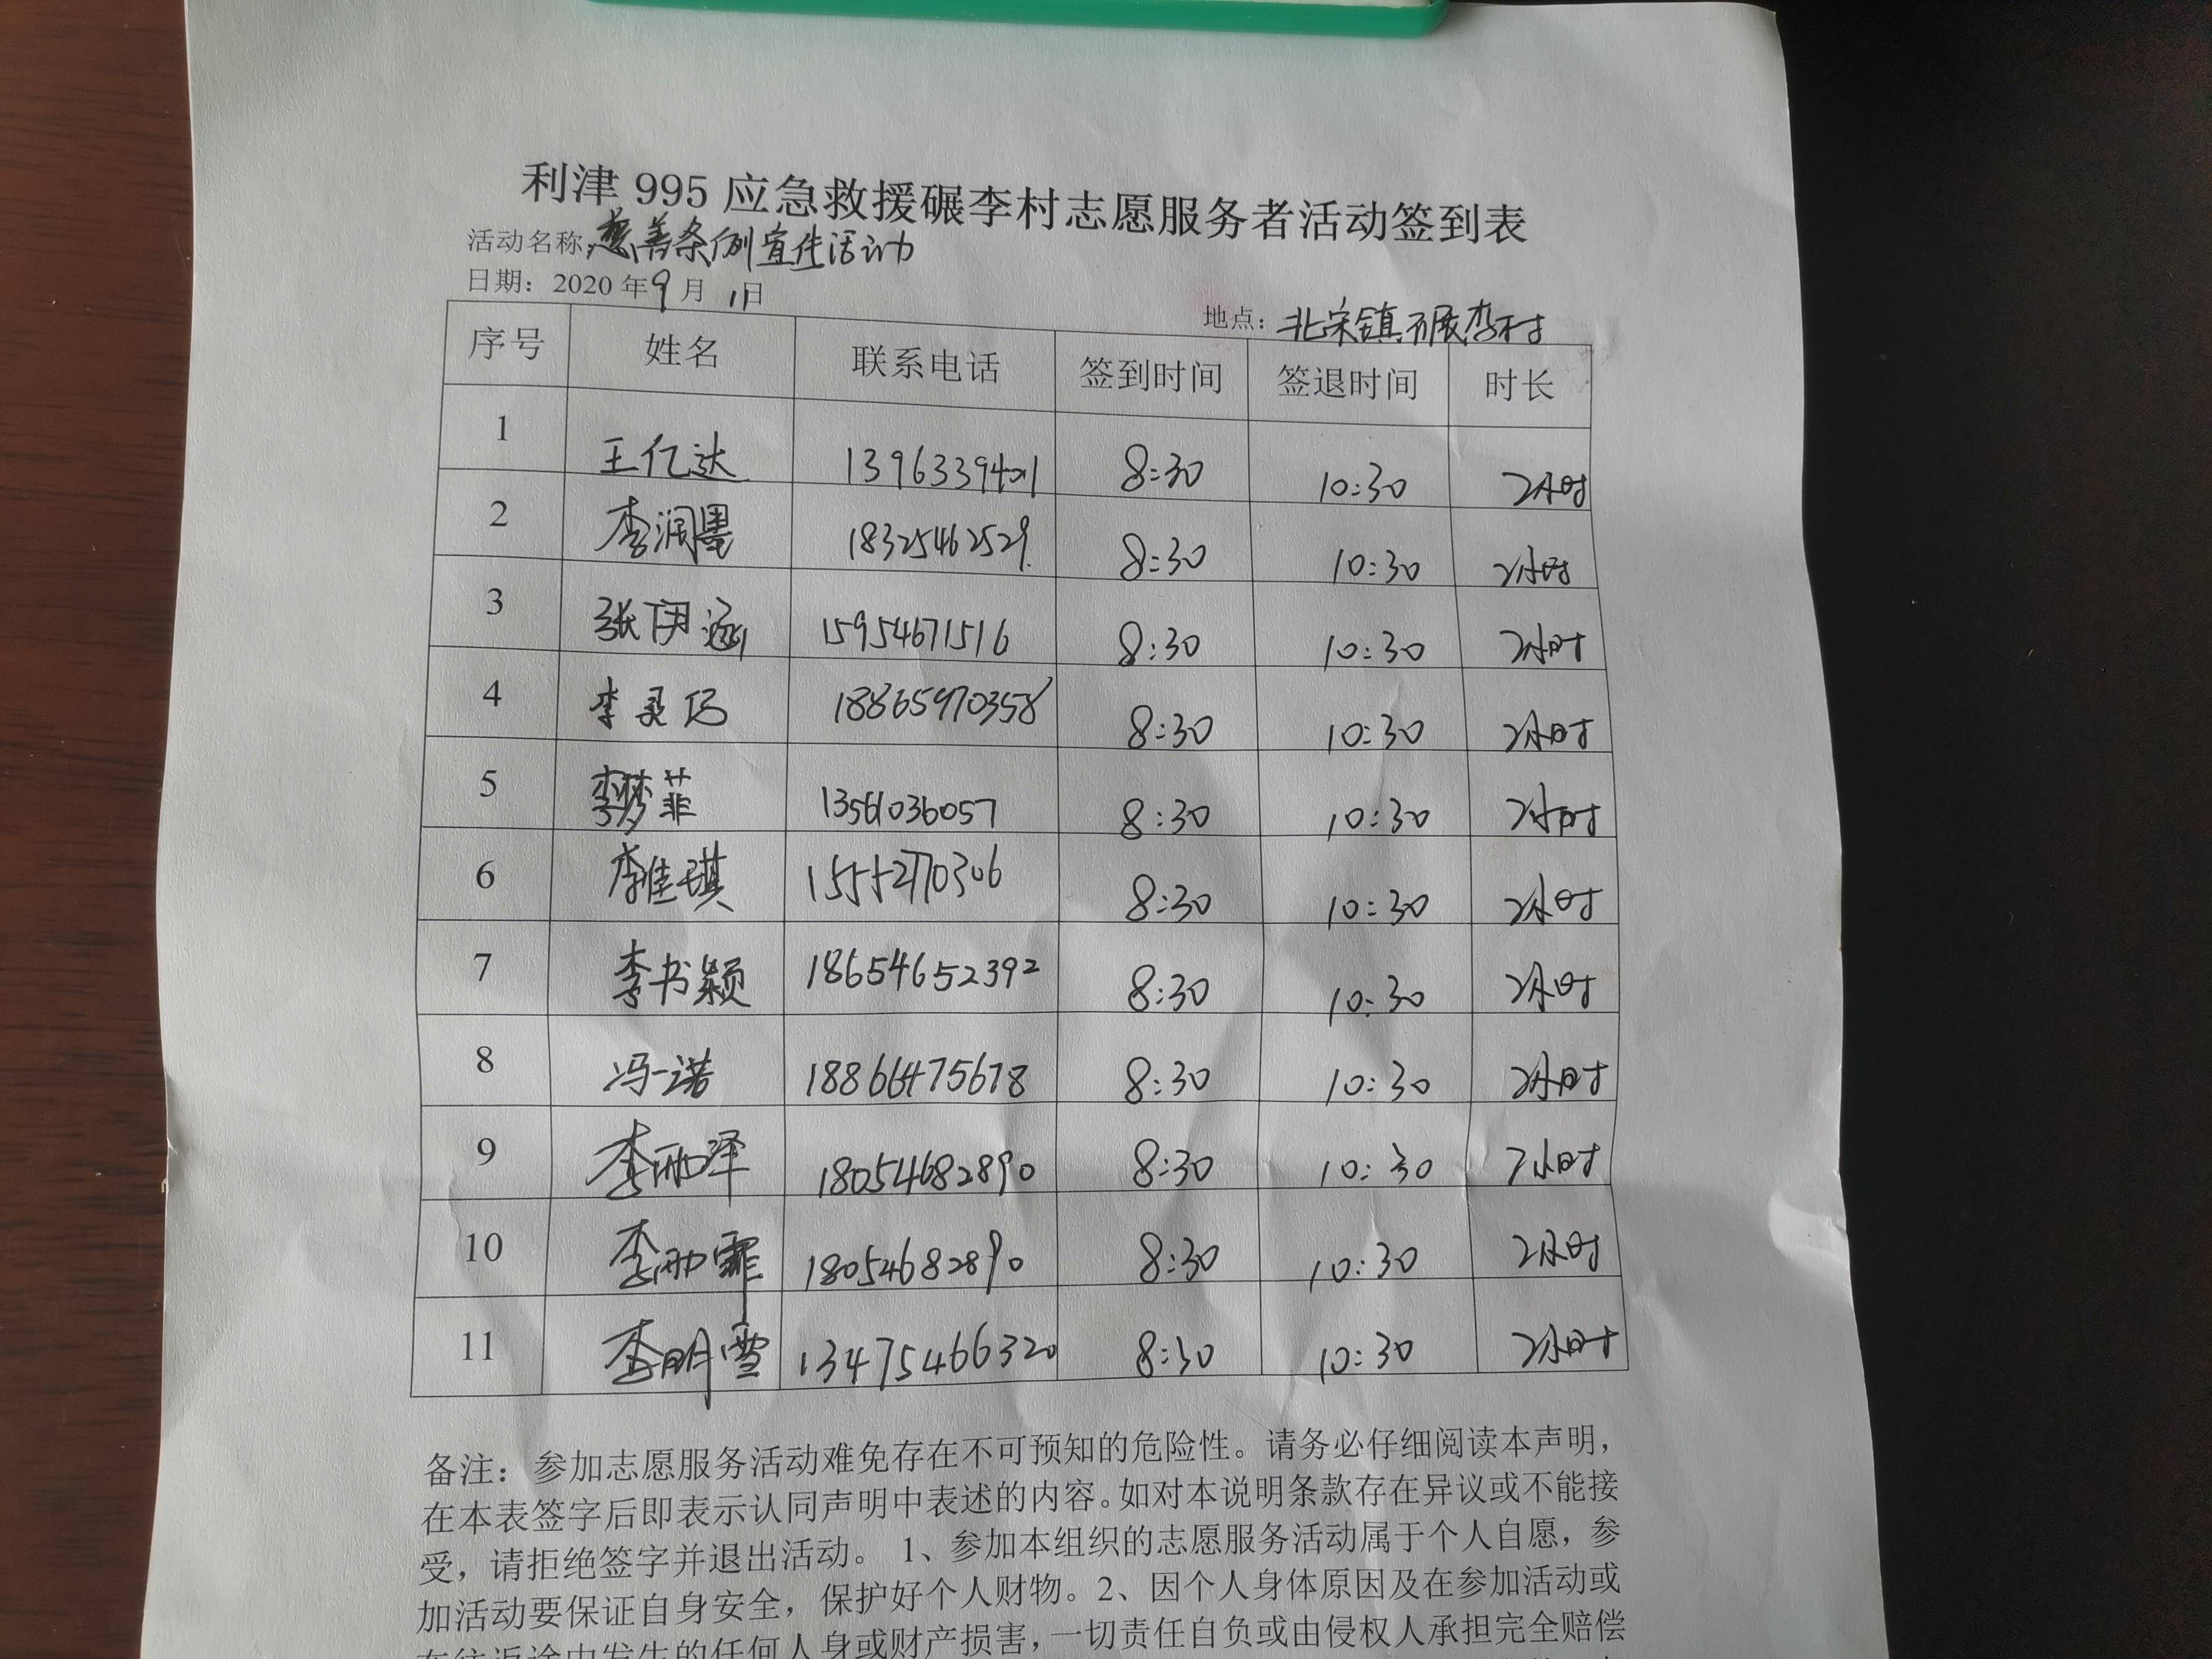 利津 995 应急救援碾李村志愿服务者活动签到表
活动名称:慈善条例宣传活动
日期：2020 年9月 1日
地点：北宋镇碾李村
序号 姓名 联系电话 签到时间 签退时间 时长
1 王亿达 8:30 10:30 2小时
2 李润墨 18325462529 8:30 10:30 2小时
3 张伊涵 15954671516 8:30 10:30 2小时
4 李灵 18865970358 8:30 10:30 2小时
5 李梦菲 13561036057 8:30 10:30 2小时
6 李佳琪 15552770306 8:30 10:30 2小时
7 李书颖 18654652392 8:30 10:30 2小时
8 冯一诺 18866475678 8:30 10:30 2小时
9 李雨泽 18054682890 8:30 10:30 2小时
10 李雨霏 18054682890 8:30 10:30 2小时
11 李明雪 13475466320 8:30 10:30 2小时
备注：参加志愿服务活动难免存在不可预知的危险性。请务必仔细阅读本声明，
在本表签字后即表示认同声明中表述的内容。如对本说明条款存在异议或不能接
受，请拒绝签字并退出活动。 1、参加本组织的志愿服务活动属于个人自愿，参
加活动要保证自身安全，保护好个人财物。2、因个人身体原因及在参加活动或
在往返途中发生的任何人身或财产损害，一切责任自负或由侵权人承担完全赔偿